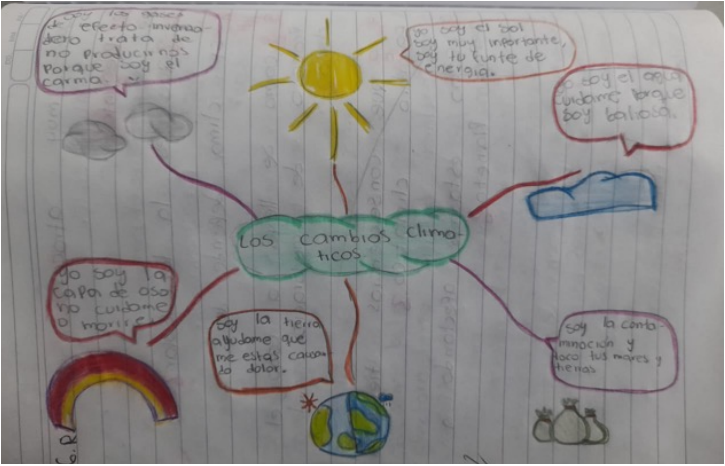 Soy los gases
de efecto inverna-
dero trata de
no producirnos
Porque soy el
carma
yo soy el sol
soy muy importante,
soy tu funte de
energia.
yo soy el agua
cuidame porque
soy baliosa.
Los cambios clima-
ticos
yo soy la
capa de oso
no cuidame
o morire
Soy la tierra
ayudame que
me estas causan
do dolor.
Soy la conta-
minacion y
toco tus mares y
tierras